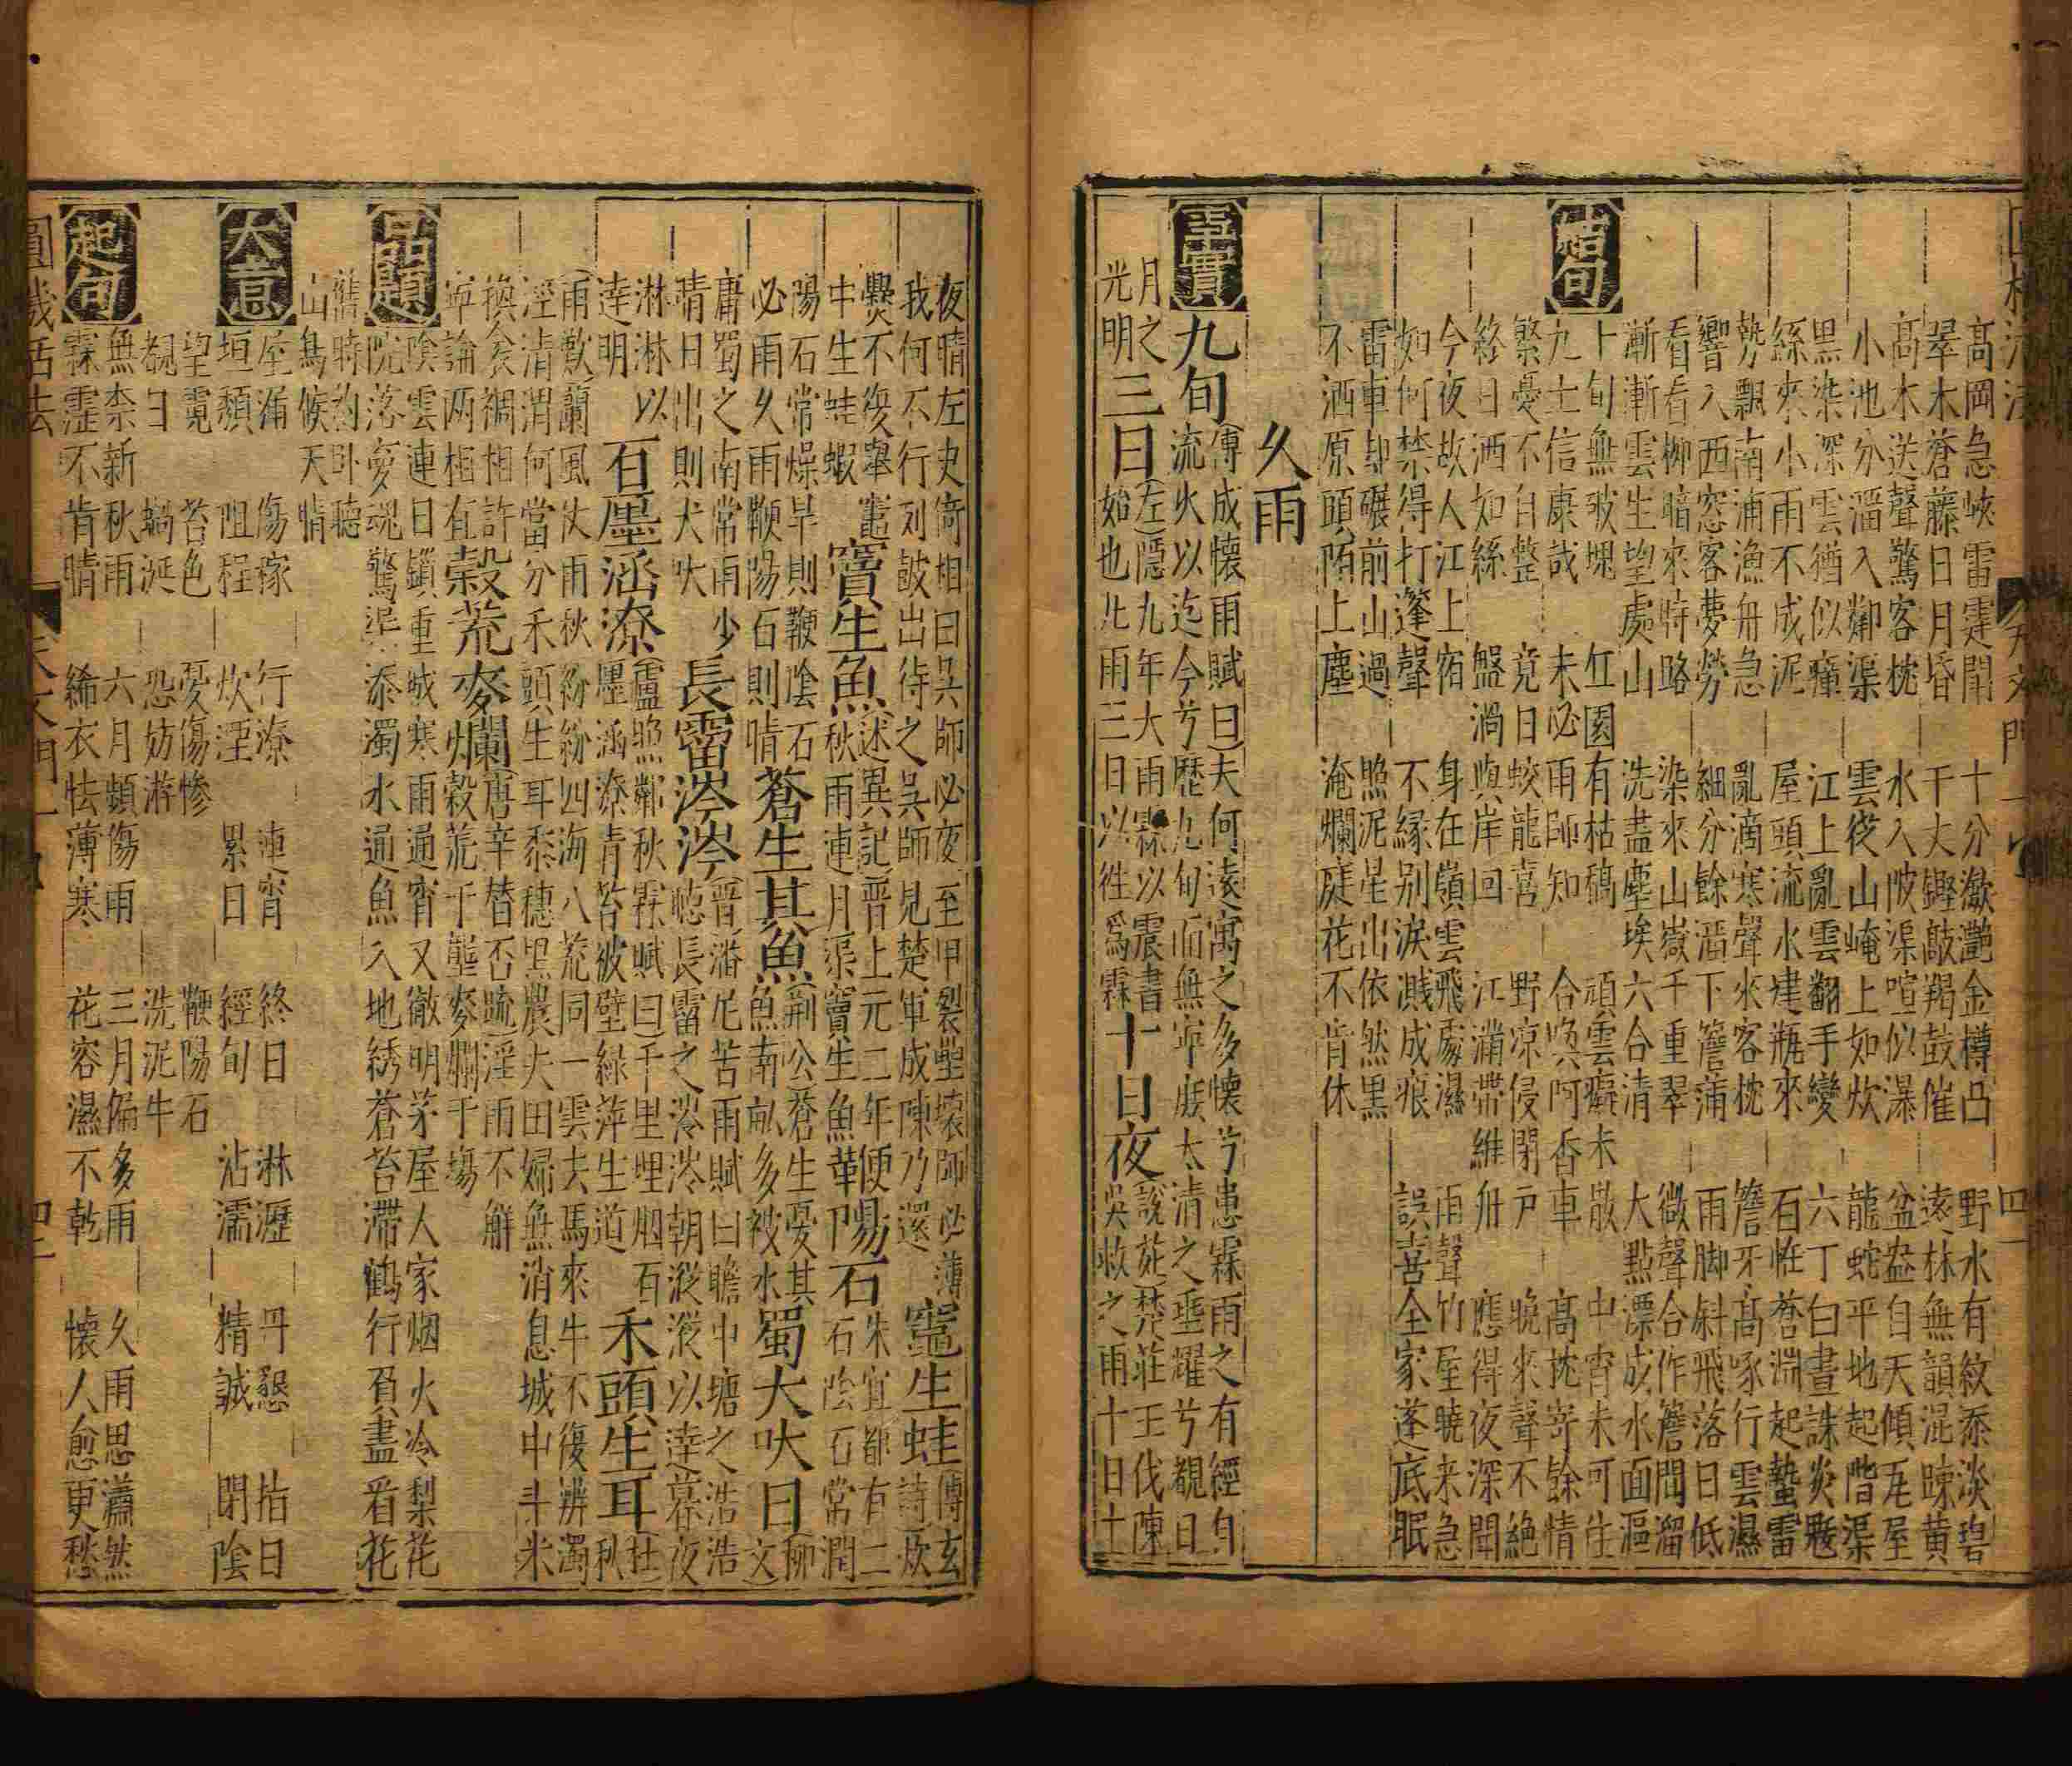 高岡急峽雷霆鬬　十分瀲灩金樽凸　野水有紋添淡碧
翠木蒼藤日月昏　千丈鏗敲羯鼓催　遠林無韻混疎黃
高木送聲驚客枕　水入陂渠喧似瀑　盆盎自天傾瓦屋
小池分溜入鄰渠　雲從山崦上如炊　龍蛇平地起階渠
黑染深雲猶似癡　江上亂雲翻手變　六丁白晝誅炎魃
絲來小雨不成泥　屋頭流水建瓶來　石怪蒼淵起蟄雷
勢飄南浦漁舟急　亂滴寒聲來客枕　簷牙高啄行雲濕
響入西窓客夢勞　細分餘溜下簷蒲　雨脚斜飛落日低
看看柳暗來時路　染來山嶽千重翠　微聲合作簷間溜
漸漸雲生望處山　洗盡塵埃六合清　大點漂成水面漚
結句
十旬無破塊　　有枯鵠　頑雲癖未散　中宵未可住
九土信康哉　未必雨師知　合喚阿香車　高枕寄餘情
繁憂不自整　竟日蛟龍喜　野凉侵閉戶　晚來聲不絶
終日洒如絲　盤渦與岸回　江滿帶維舟　應得夜深聞
今夜故人江上宿　身在嶺雲飛處濕　雨聲竹屋曉來急
如何禁得打篷聲　不緣別淚濺成痕　誤喜全家蓬底眠
雷車却碾前山過　照泥星出依然黑
不洒原頭陌上塵　淹爛庭花不肯休
久雨
事實
九旬傅成懷雨賦曰夫何遠寓之多懷兮患霖雨之有經自
流火以迄今兮歷九旬而無寧厥太清之垂耀兮覩日
月之光明三日左隱九年大雨霖以震書始也凡雨三日以往爲霖十日夜說苑楚莊王伐陳吳救之雨十日十
夜晴左史倚相曰吳師必夜至甲裂壘壞師必薄
我何不行列鼓出待之吳師見楚軍成陳乃還竈生蛙傅玄詩炊
爨不復舉竈中生蛙蝦竇生魚述異記晋上元二年便秋雨連月渠竇生魚華陽石朱宜都有二石陰石常潤
陽石常燥旱則鞭陰石必雨久雨鞭陽石則晴蒼生其魚荆公蒼生憂其魚南畝多被水蜀犬吠日柳文
庸蜀之南常雨少晴日出則犬吠長霤涔涔晋潘尼苦雨賦曰瞻中塘之浩浩聽長霤之涔涔朝淫淫以達暮夜
淋淋以達明石墨涵潦盧照鄰秋霖賦曰千里埋烟百壥涵潦靑苔被壁綠萍生道禾頭生耳杜秋
雨歎闌風伏雨秋紛紛四海八荒同一雲去馬來牛不復辨濁
涇清渭何當分禾頭生耳黍穗黑農夫田婦無消息城中斗米
換衾裯相許寧論兩相直穀荒麥爛唐辛替否疏淫雨不解穀荒于壟麥爛于塲
品題
陰雲連日鎖重城寒雨通宵又徹明茅屋人家烟火冷梨花
院落夢魂驚渠添濁水通魚入地綉蒼苔滯鶴行負盡看花
舊時約卧聽山鳥候天晴
大意
屋漏　傷稼　行潦　連宵　終日　淋瀝　丹懇　指日
垣頽　阻程　炊湮　累日　經旬　沾濡　精誠　閉陰
望霓　苔色　憂傷慘　鞭陽石
覩日　蝸涎　恐妨游　洗泥牛
起句
無柰新秋雨　六月頻傷雨　三月偏多雨　久雨思瀟然
霖霪不肯晴　絺衣怯薄寒　花容濕不乾　懷人愈更愁
圓機活法　天文門一　四二